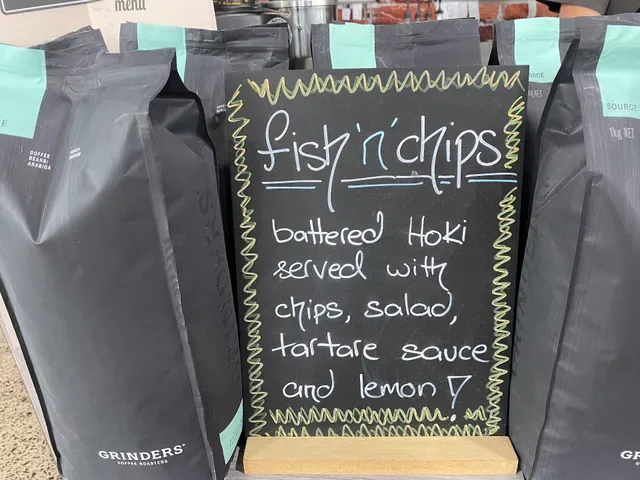 menu
fish 'n' chips
battered Hoki
served with
chips, salad,
tartare sauce
and lemon!
COFFEE
BEANS:
ARABICA
GRINDERS
COFFEE ROASTERS
SOURCE
1kg NET
GR